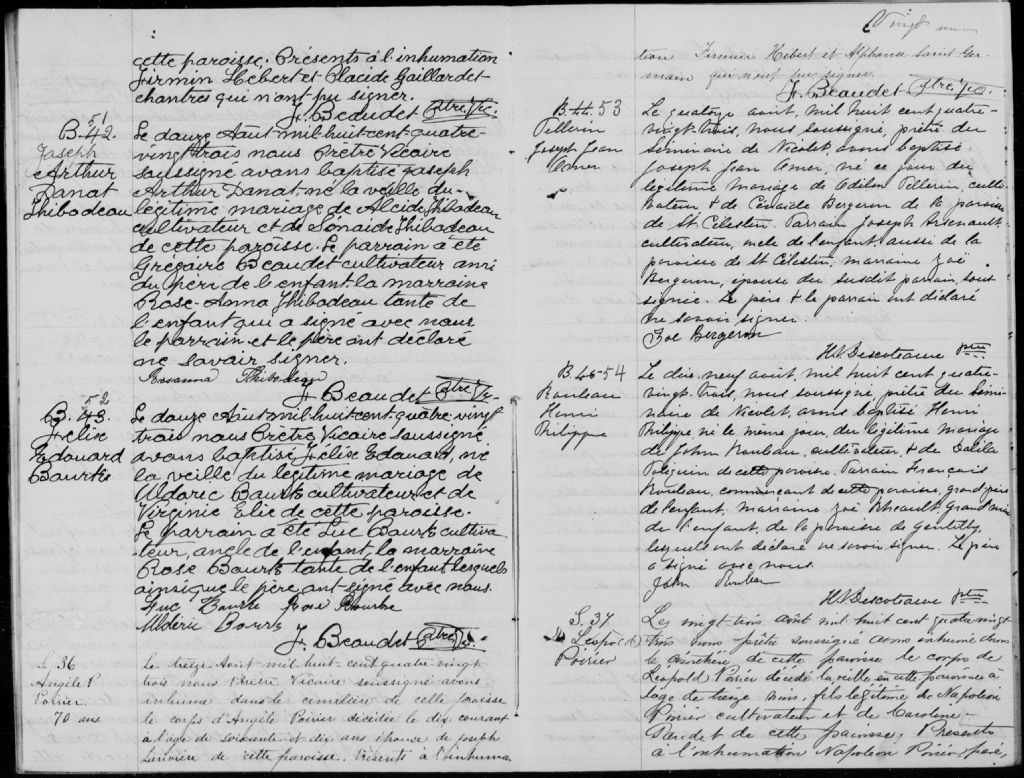 cette paroisse. Présents à l'inhumation
Firmin Hébert et Placide Gaillardet
chantres qui n'ont pu signer.
J. Beaudet Ptre Vic.
51
B. 42.
Joseph
Arthur
Danat
Thibodeau
Le douze Août mil huit cent quatre
vingt trois nous Prêtre Vicaire
soussigné avons baptisé Joseph
Arthur Danat, né la veille du
légitime mariage de Alcide Thibodeau
cultivateur et de Sonaide Thibodeau
de cette paroisse. Le parrain a été
Grégaire Beaudet cultivateur ami
du père de l'enfant la marraine
Rose-Anna Thibodeau tante de
l'enfant qui a signé avec nous
le parrain et le père ont déclaré
ne savoir signer.
Rosanna Thibodeau
J. Beaudet Ptre Vc.
52
B. 43.
Felix
Edouard
Bourke
Le douze Août mil huit cent quatre vingt
trois nous Prêtre Vicaire soussigné
avons baptisé Felix Edouard, né
la veille du légitime mariage de
Aldoric Bourk cultivateur et de
Virginie Elie de cette paroisse.
Le parrain a été Luc Bourk cultiva
teur, oncle de l'enfant, la marraine
Rose Bourk tante de l'enfant lesquels
ainsi que le père ont signé avec nous.
Luc Bourke Rose Bourke
Aldéric Bourk
J. Beaudet Ptre Vc.
S. 36
Angèle P
Poirier.
70 ans
Le treize Août mil huit-cent quatre vingt
trois nous Prêtre Vicaire soussigné avons
inhumé dans le cimetière de cette paroisse
le corps d'Angèle Poirier décédée le dix courant
à l'age de soixante et dix ans épouse de Joseph
Larivière de cette paroisse. Présents à l'inhuma
Vingt un
tion Firmin Hébert et Alphonse Saint Ger-
main qui n'ont pu signer.
J. Beaudet Ptre Vic.
B. 44. 53
Pellerin
Joseph Jean
Omer
Le quatorze août, mil huit cent quatre-
vingt-trois, nous soussigné, prêtre du
Séminaire de Nicolet, avons baptisé
Joseph Jean Omer, né ce jour du
légitime mariage de Odilon Pellerin, culti-
vateur & de Bergeron de la paroisse
de St Célestin. Parrain Joseph Arsenault,
cultivateur, oncle de l'enfant, aussi de la
paroisse de St Célestin, marraine Zoë
Bergeron, épouse du susdit parrain, sous-
signée. Le père & le parrain ont déclaré
ne savoir signer.
Zoé Bergeron
H.V. Descoteaux ptre
B. 45 54
Rouleau
Henri
Philippe
Le dix neuf août, mil huit cent quatre-
vingt-trois, nous soussigné, prêtre du Sémi-
naire de Nicolet, avons baptisé Henri
Philippe né le même jour, du légitime mariage
de John Rouleau, cultivateur & de Dalila
Poliquin de cette paroisse. Parrain François
Rouleau, commerçant de cette paroisse, grand-père
de l'enfant, marraine Zoë grand'mère
de l'enfant, de la paroisse de Gentilly,
lesquels ont déclaré ne savoir signer. Le père
a signé avec nous.
John Rouleau
H.V. Descoteaux ptre
S. 37
Léopold
Poirier
Le vingt trois août mil huit cent quatre vingt
trois nous prêtre soussigné avons inhumé dans
le cimetière de cette paroisse le corps de
Léopold Poirier décédé la veille en cette paroisse à
l'age de treize ans, fils légitime de Napoléon
Poirier cultivateur et de Caroline
Gaudet de cette paroisse; Présents
à l'inhumation Napoléon Poirier, père,